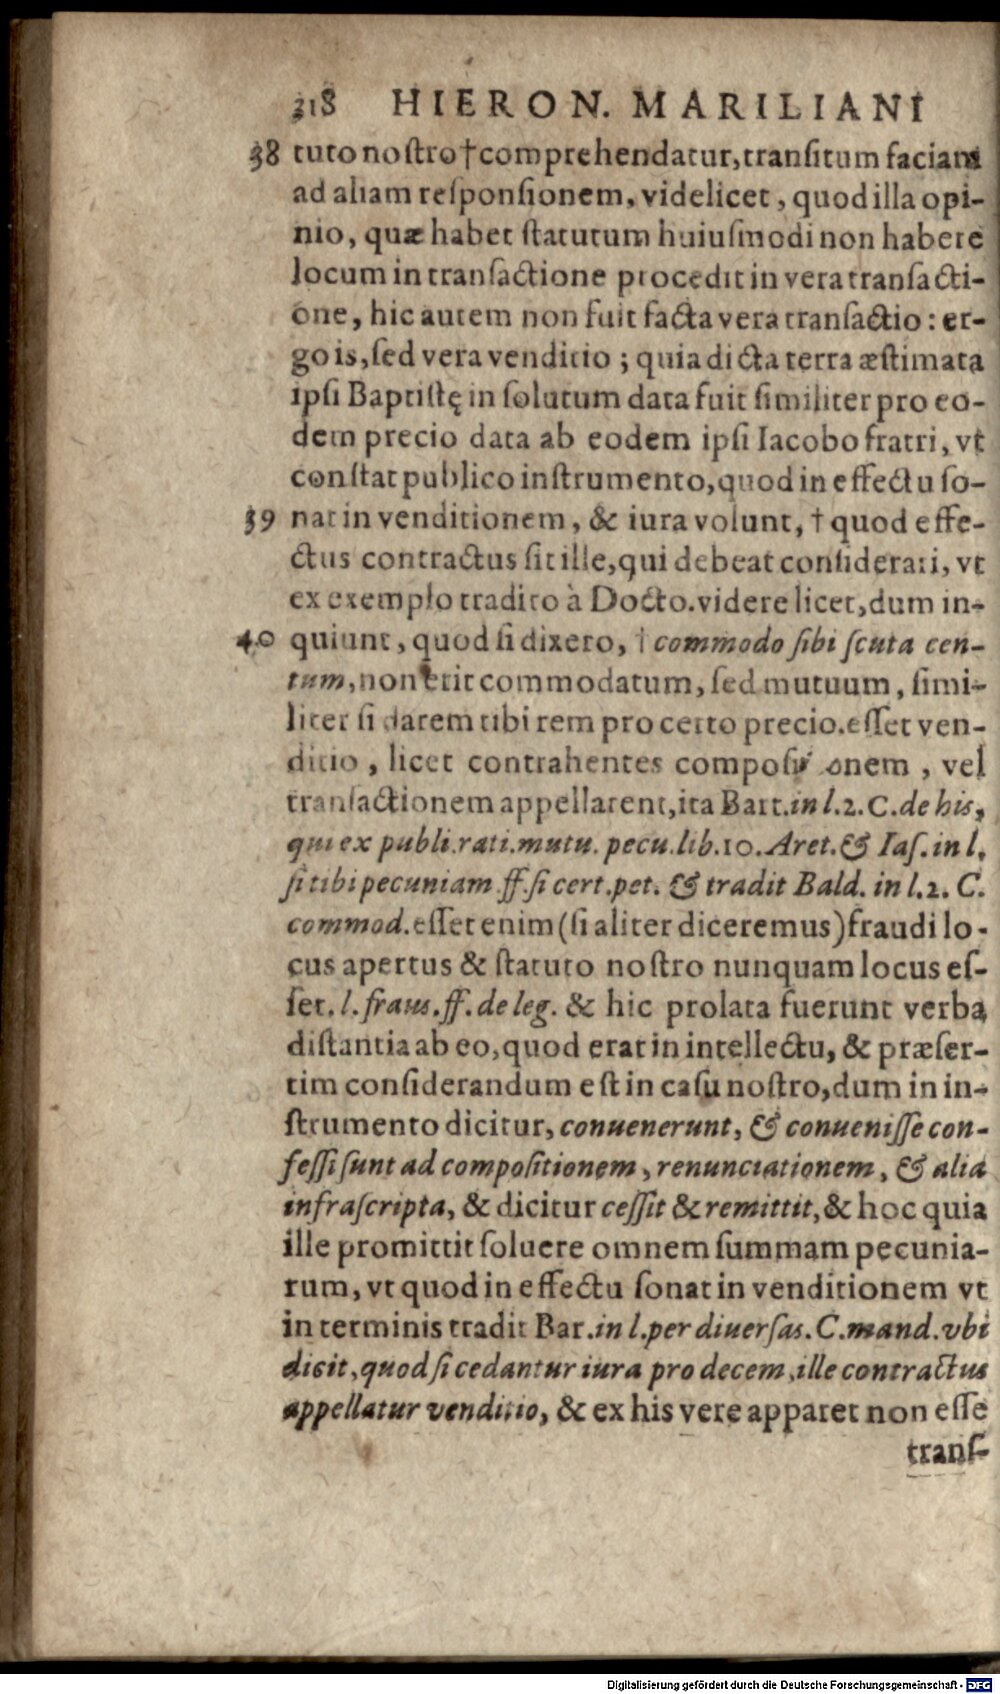 318 HIERON. MARILIANI
38 tuto nostro † comprehendatur, transitum faciam
ad aliam responsionem, videlicet, quod illa opi-
nio, quæ habet statutum huiusmodi non habere
locum in transactione procedit in vera transacti-
one, hic autem non fuit facta vera transactio: er-
go is, sed vera venditio; quia dicta terra æstimata
ipsi Baptistę in solutum data fuit similiter pro eo-
dem precio data ab eodem ipsi Iacobo fratri, vt
constat publico instrumento, quod in effectu so-
39 nat in venditionem, & iura volunt, † quod effe-
ctus contractus sit ille, qui debeat considerari, vt
ex exemplo tradito à Docto. videre licet, dum in-
40 quiunt, quod si dixero, † commodo sibi scuta cen-
tum, non erit commodatum, sed mutuum, simi-
liter si darem tibi rem pro certo precio. esset ven-
ditio, licet contrahentes compositionem, vel
transactionem appellarent, ita Bart. in l. 2. C. de his,
qui ex publi. rati. mutu. pecu. lib. 10. Aret. & Ias. in l.
si tibi pecuniam ff. si cert. pet. & tradit Bald. in l. 2. C.
commod. esset enim (si aliter diceremus) fraudi lo-
cus apertus & statuto nostro nunquam locus es-
set. l. fraus. ff. de leg. & hic prolata fuerunt verba
distantia ab eo, quod erat in intellectu, & præser-
tim considerandum est in casu nostro, dum in in-
strumento dicitur, conuenerunt, & conuenisse con-
fessi sunt ad compositionem, renunciationem, & alia
infrascripta, & dicitur cessit & remittit, & hoc quia
ille promittit soluere omnem summam pecunia-
rum, vt quod in effectu sonat in venditionem vt
in terminis tradit Bar. in l. per diuersas. C. mand. vbi
dicit, quod si cedantur iura pro decem, ille contractus
appellatur venditio, & ex his vere apparet non esse
trans-
Digitalisierung gefördert durch die Deutsche Forschungsgemeinschaft - DFG